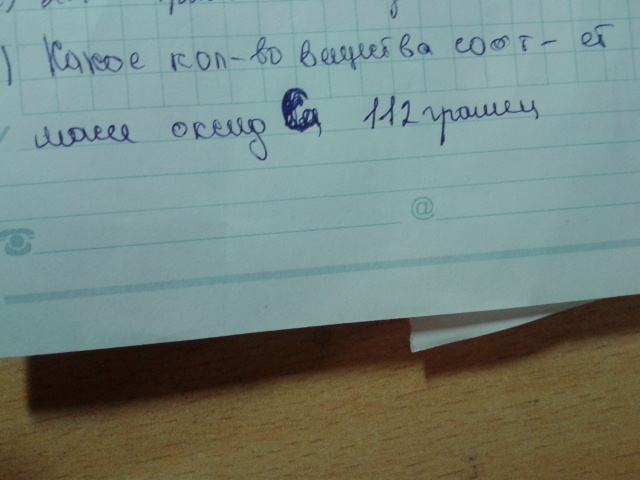 ) Какое кол-во вещества соот-ет
массе оксид Ca 112 грамм
@